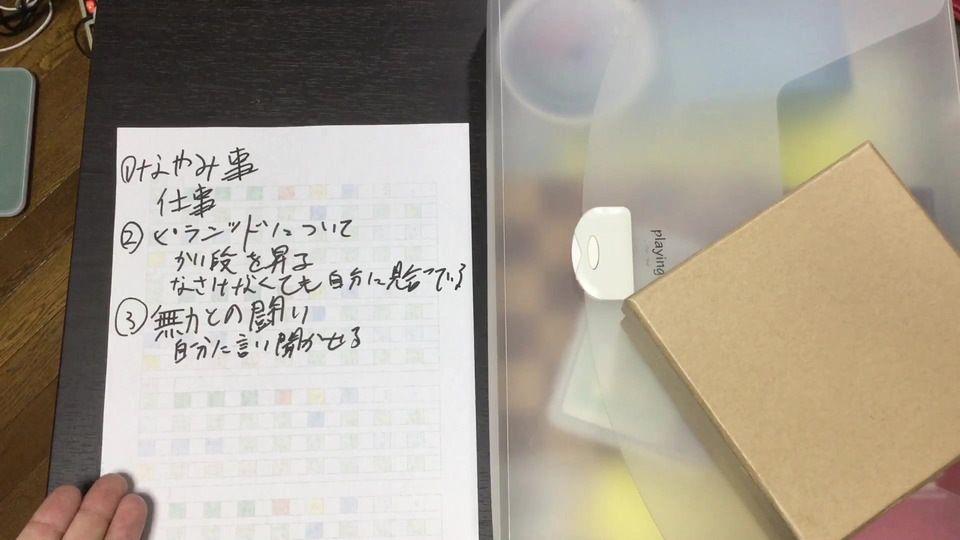 ①なやみ事
仕事
②ピラミッドについて
かい段を昇る
なさけなくても自分に見合っている
③無力との闘い
自分に言い聞かせる
playing